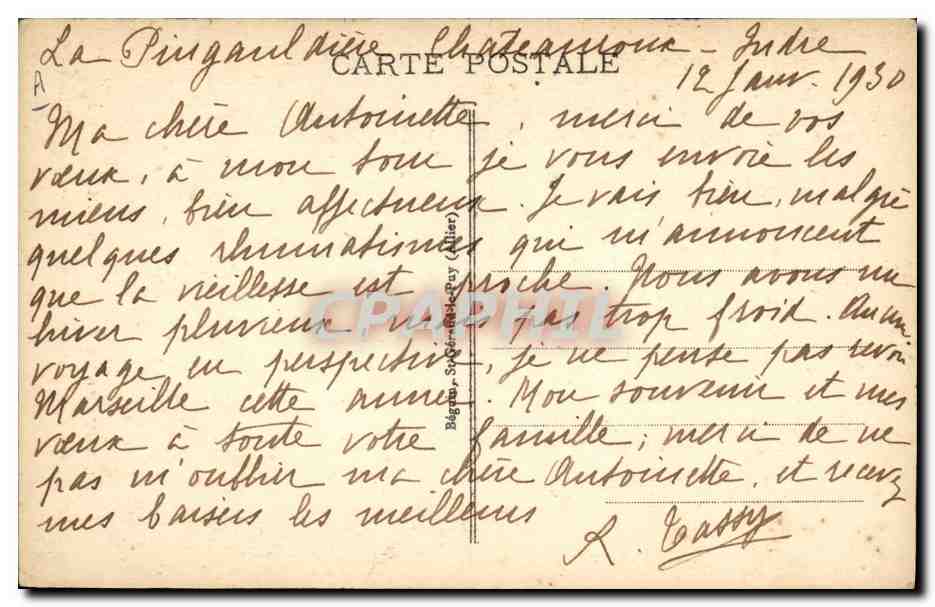 La Pingauldière Châteauroux - Indre
CARTE POSTALE
12 Janv. 1930
A
Ma chère Antoinette, merci de vos
vœux, à mon tour je vous envoie les
miens, bien affectueux. Je vais bien, malgré
quelques rhumatismes qui m'annoncent
que la vieillesse est proche. Nous avons un
hiver pluvieux mais pas trop froid. Aucun
voyage en perspective, je ne pense pas revoir
Marseille cette année. Mon souvenir et mes
vœux à toute votre famille; merci de ne
pas m'oublier ma chère Antoinette, et recevez
mes baisers les meilleurs
R. Tassy
Béguin, St-Gérand-le-Puy (Allier)
CPAPHIL